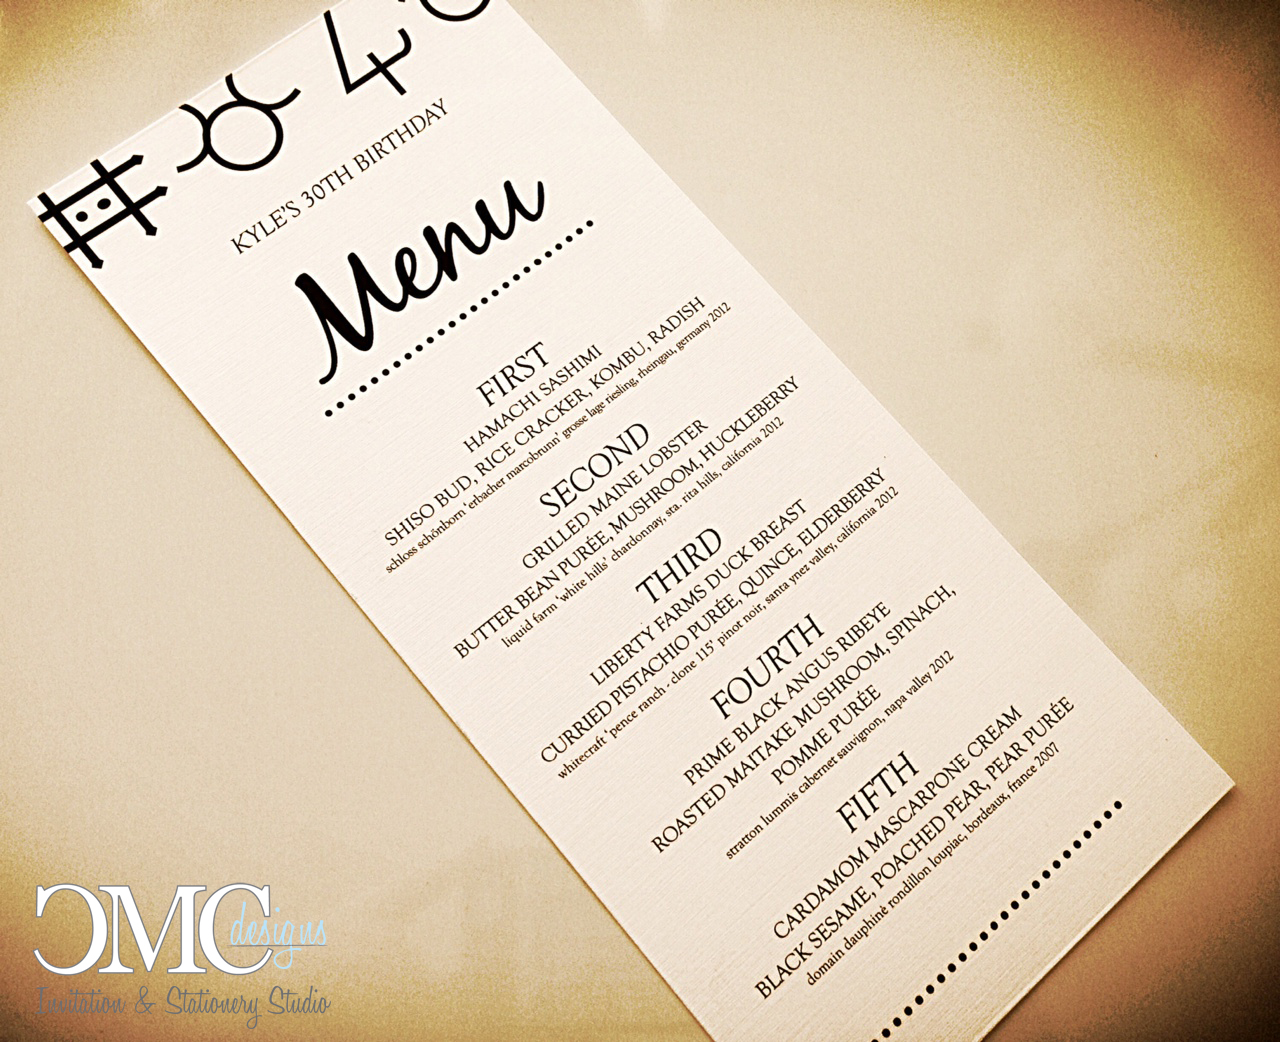 KYLE'S 30TH BIRTHDAY
Menu
FIRST
HAMACHI SASHIMI
SHISO BUD, RICE CRACKER, KOMBU, RADISH
schloss schönborn 'erbacher marcobrunn' grosse lage riesling, rheingau, germany 2012
SECOND
GRILLED MAINE LOBSTER
BUTTER BEAN PURÉE, MUSHROOM, HUCKLEBERRY
liquid farm 'white hills' chardonnay, sta. rita hills, california 2012
THIRD
LIBERTY FARMS DUCK BREAST
CURRIED PISTACHIO PURÉE, QUINCE, ELDERBERRY
whitecraft 'pence ranch - clone 115' pinot noir, santa ynez valley, california 2012
FOURTH
PRIME BLACK ANGUS RIBEYE
ROASTED MAITAKE MUSHROOM, SPINACH,
POMME PURÉE
stratton lummis cabernet sauvignon, napa valley 2012
FIFTH
CARDAMOM MASCARPONE CREAM
BLACK SESAME, POACHED PEAR, PEAR PURÉE
domain dauphinè rondillon loupiac, bordeaux, france 2007
CMC designs
Invitation & Stationery Studio